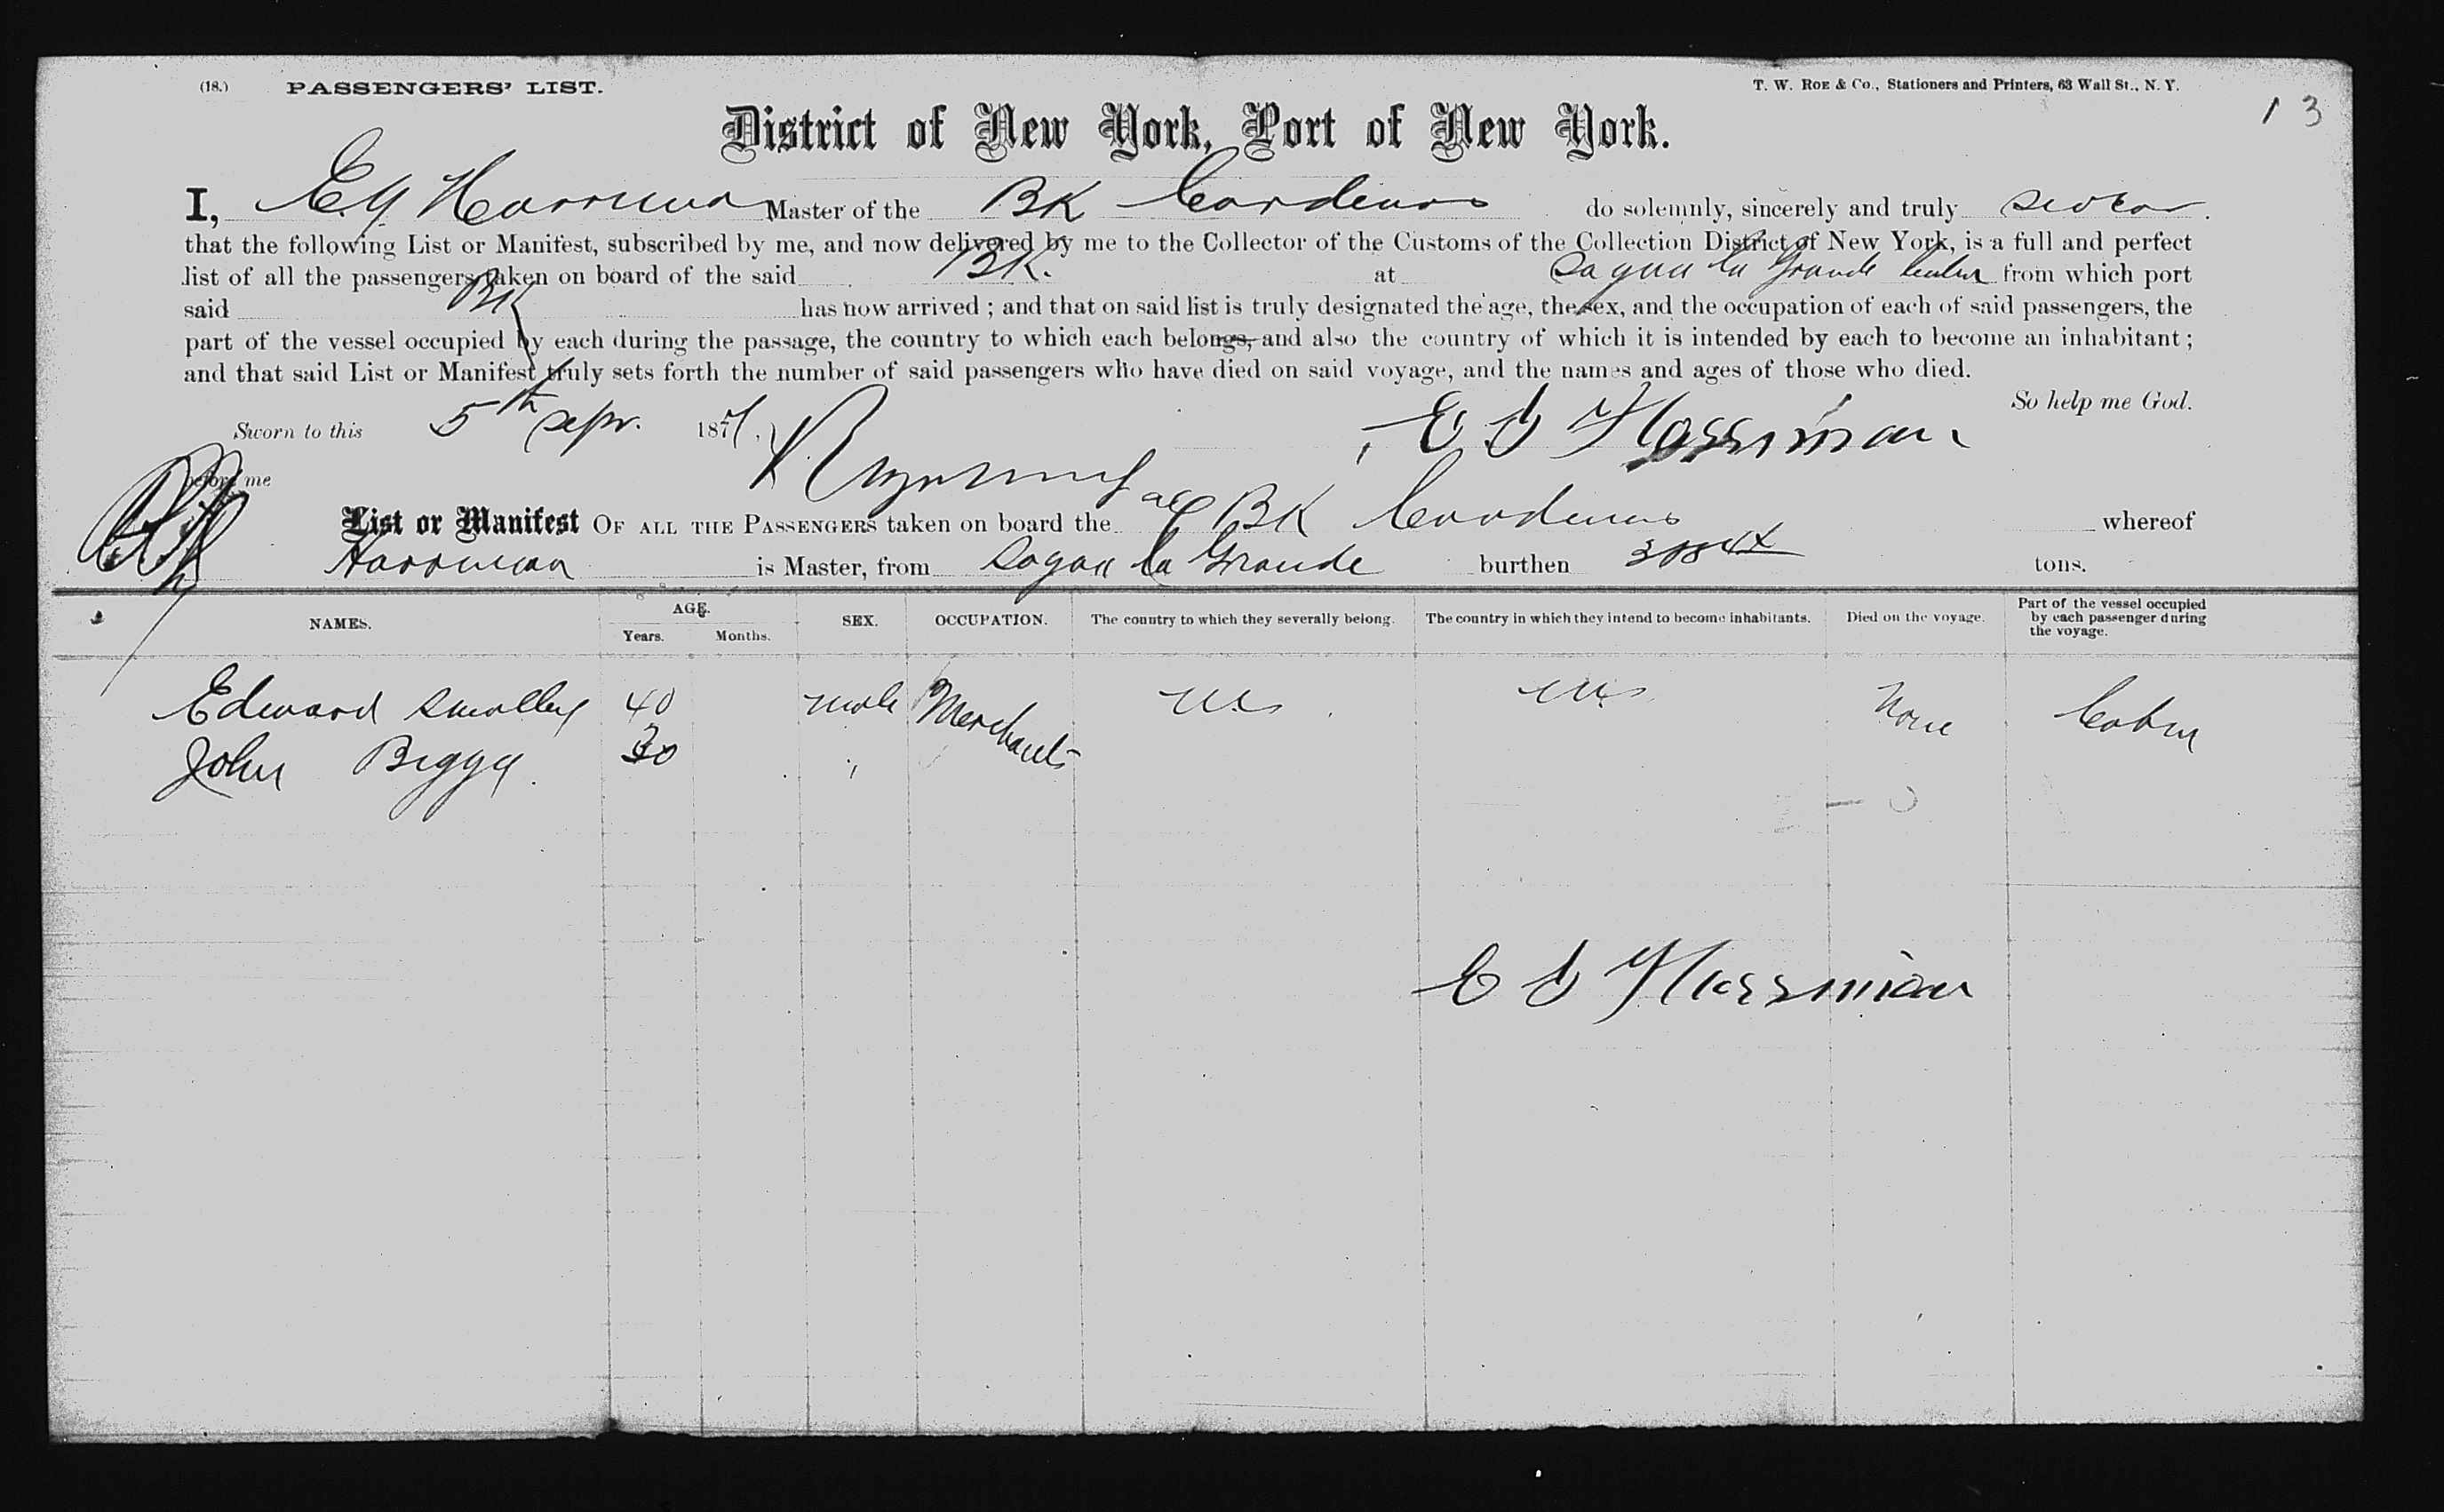 (18.) PASSENGERS' LIST.
T. W. ROE & Co., Stationers and Printers, 63 Wall St., N. Y.
13
District of New York, Port of New York.
I, Harriman Master of the BK Cardenas do solemnly, sincerely and truly swear.
that the following List or Manifest, subscribed by me, and now delivered by me to the Collector of the Customs of the Collection District of New York, is a full and perfect
list of all the passengers taken on board of the said BK. at Sagua la Grande Cuba from which port
said BK has now arrived ; and that on said list is truly designated the age, the sex, and the occupation of each of said passengers, the
part of the vessel occupied by each during the passage, the country to which each belongs, and also the country of which it is intended by each to become an inhabitant ;
and that said List or Manifest truly sets forth the number of said passengers who have died on said voyage, and the names and ages of those who died.
So help me God.
Sworn to this 5th Sepr. 187 E Harriman
before me
List or Manifest OF ALL THE PASSENGERS taken on board the BK Cardenas whereof
Harriman is Master, from Sagua la Grande burthen tons.
NAMES. AGE. Years. Months. SEX. OCCUPATION. The country to which they severally belong. The country in which they intend to become inhabitants. Died on the voyage. Part of the vessel occupied by each passenger during the voyage.
Edward Smalley 40 male Merchants US US None Cabin
John Bigga 30 "
E Harriman